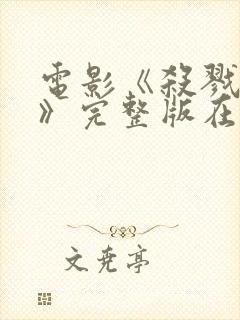 電影《殺戮
》完整版在
文堯亭